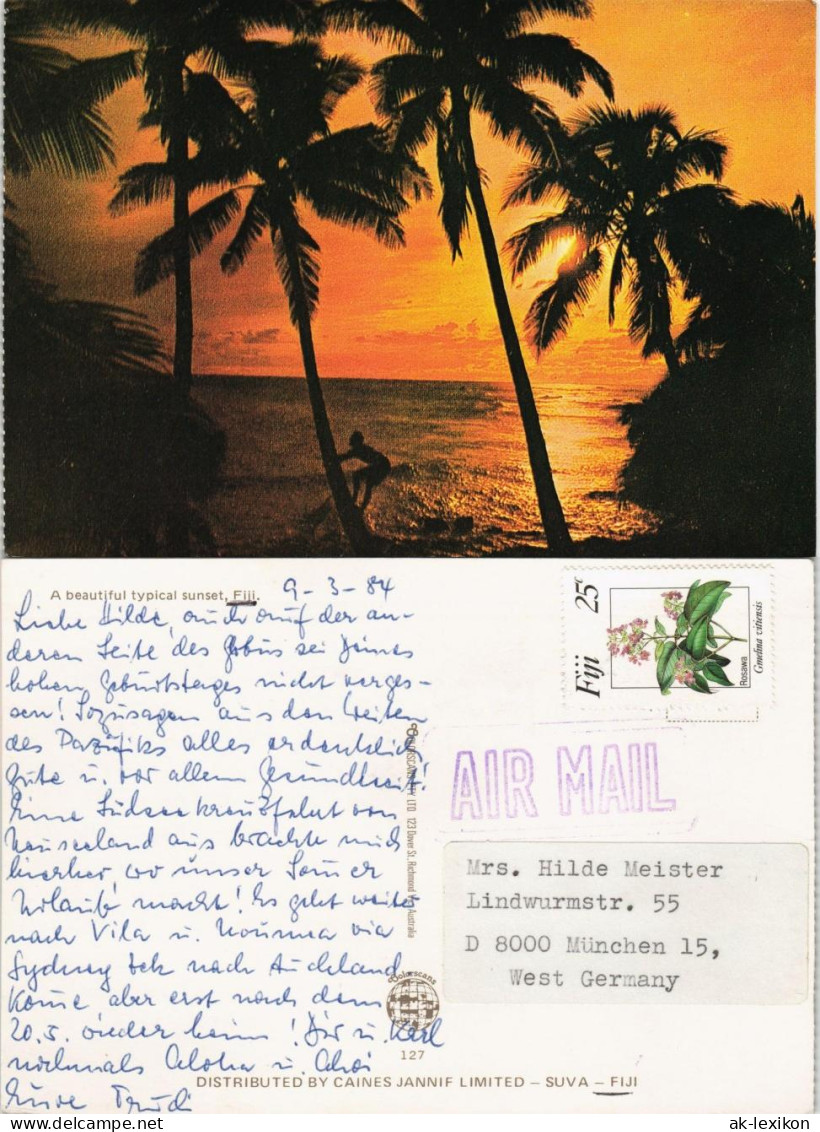 A beautiful typical sunset, Fiji.
9-3-84
Liebe Hilde, auch auf der an-
deren Seite des Globus sei Deines
hohen Geburtstages nicht verges-
sen! Sozusagen aus den Weiten
des Pazifiks alles erdenklich
Gute u. vor allem Gesundheit!
Eine Südseekreuzfahrt von
Neuseeland aus brachte mich
hierher wo unser
Urlaub macht! Es geht weiter
nach Vila u. Noumea via
Sydney zck nach Auckland
Kome aber erst nach dem
20.5. wieder heim! Dir u. Karl
nochmals Aloha u. Ahoi
Eure Trudi
COLORSCANS PTY LTD 123 Dover St. Richmond Vic. Australia
Colorscans
127
DISTRIBUTED BY CAINES JANNIF LIMITED – SUVA – FIJI
Fiji 25c
Rosawa
Gmelina vitiensis
AIR MAIL
Mrs. Hilde Meister
Lindwurmstr. 55
D 8000 München 15,
West Germany
ak-lexikon